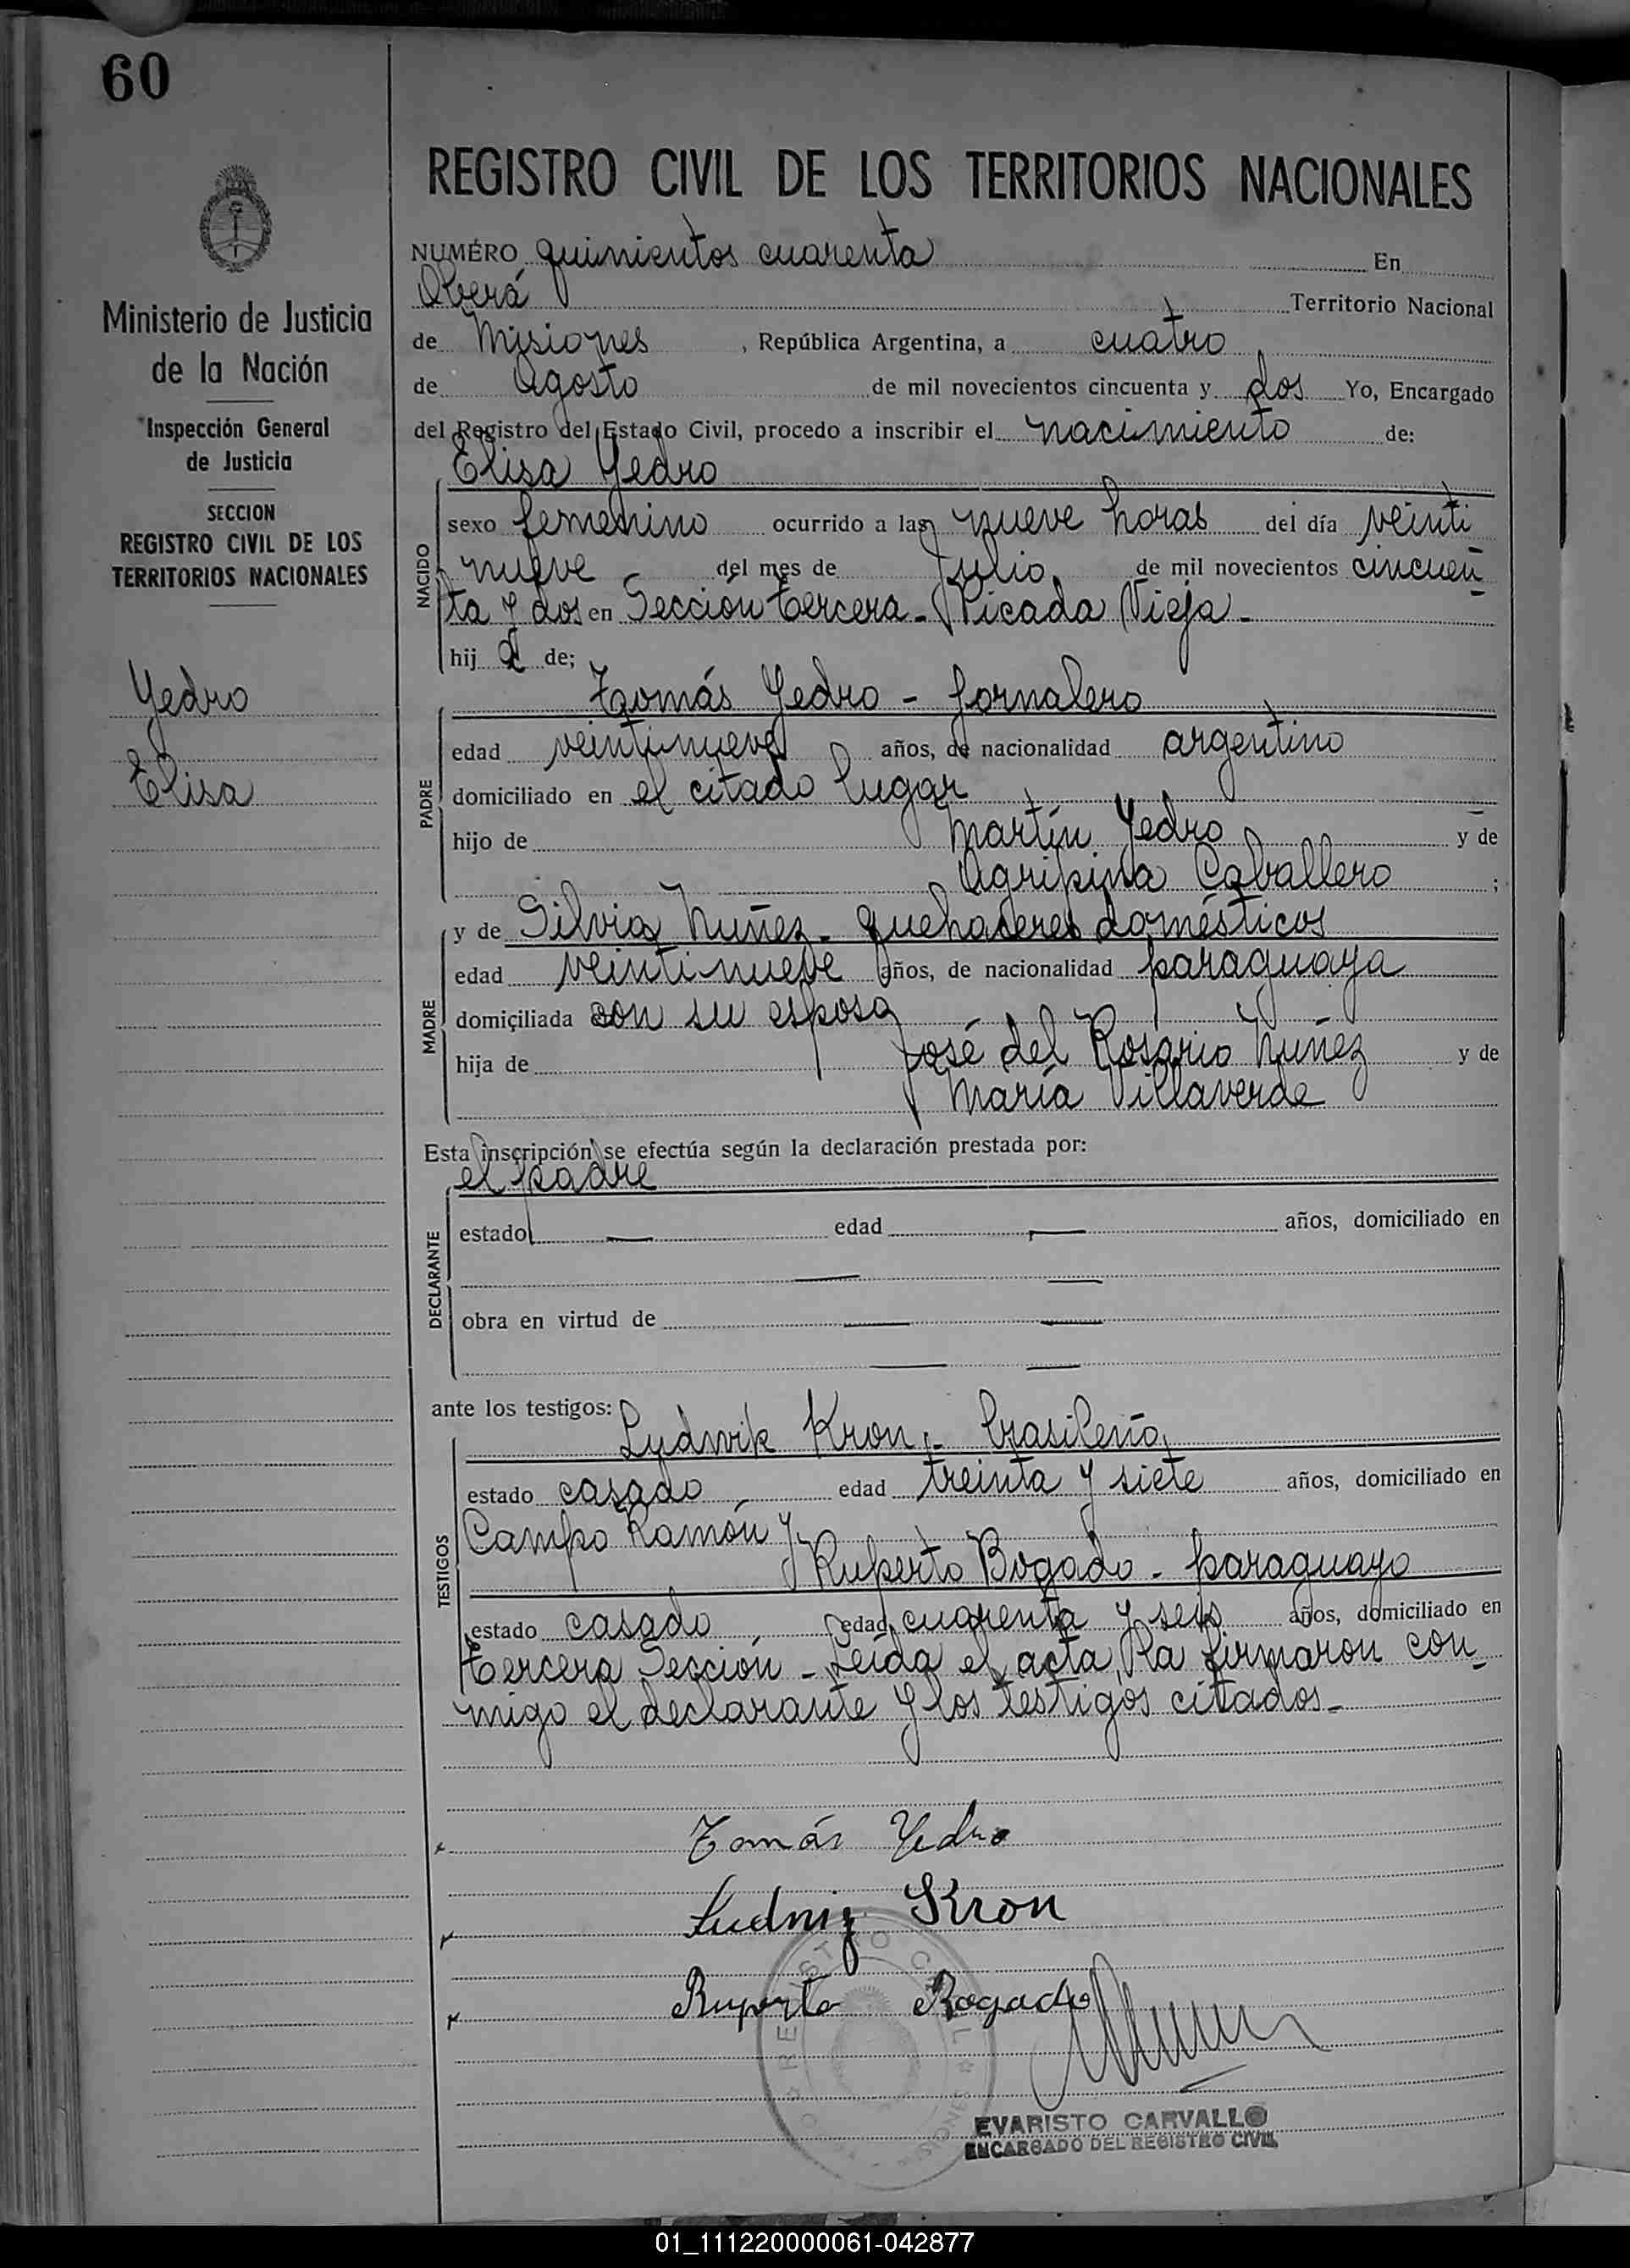 60
REGISTRO CIVIL DE LOS TERRITORIOS NACIONALES
NUMÉRO quinientos cuarenta En
Oberá Territorio Nacional
de Misiones, República Argentina, a cuatro
de Agosto de mil novecientos cincuenta y dos Yo, Encargado
del Registro del Estado Civil, procedo a inscribir el nacimiento de:
Elisa Yedro
NACIDO
sexo femenino ocurrido a las nueve horas del día veinti
nueve del mes de Julio de mil novecientos cincuen
ta y dos en Sección tercera - Picada Vieja -
hij a de;
Tomás Yedro - jornalero
PADRE
edad veintinueve años, de nacionalidad argentino
domiciliado en el citado lugar
hijo de Martín Yedro y de
Agripina Caballero ;
y de Silvia Nuñez - quehaceres domésticos
MADRE
edad veintinueve años, de nacionalidad paraguaya
domiçiliada con su esposo
hija de José del Rosario Nuñez y de
María Villaverde
Esta inscripción se efectúa según la declaración prestada por:
el padre
DECLARANTE
estado — edad — años, domiciliado en
— —
obra en virtud de — —
— —
ante los testigos:
Ludwik Kron - brasileño,
TESTIGOS
estado casado, edad treinta y siete años, domiciliado en
Campo Ramón y
Ruperto Bogado - paraguayo
estado casado edad cuarenta y seis años, domiciliado en
tercera Sección - Leída el acta, la firmaron con
migo el declarante y los testigos citados -
Tomás Yedro
Ludwig Kron
Ruperto Bogado
EVARISTO CARVALLO
ENCARGADO DEL REGISTRO CIVIL
Ministerio de Justicia
de la Nación
Inspección General
de Justicia
SECCION
REGISTRO CIVIL DE LOS
TERRITORIOS NACIONALES
Yedro
Elisa
01_111220000061-042877